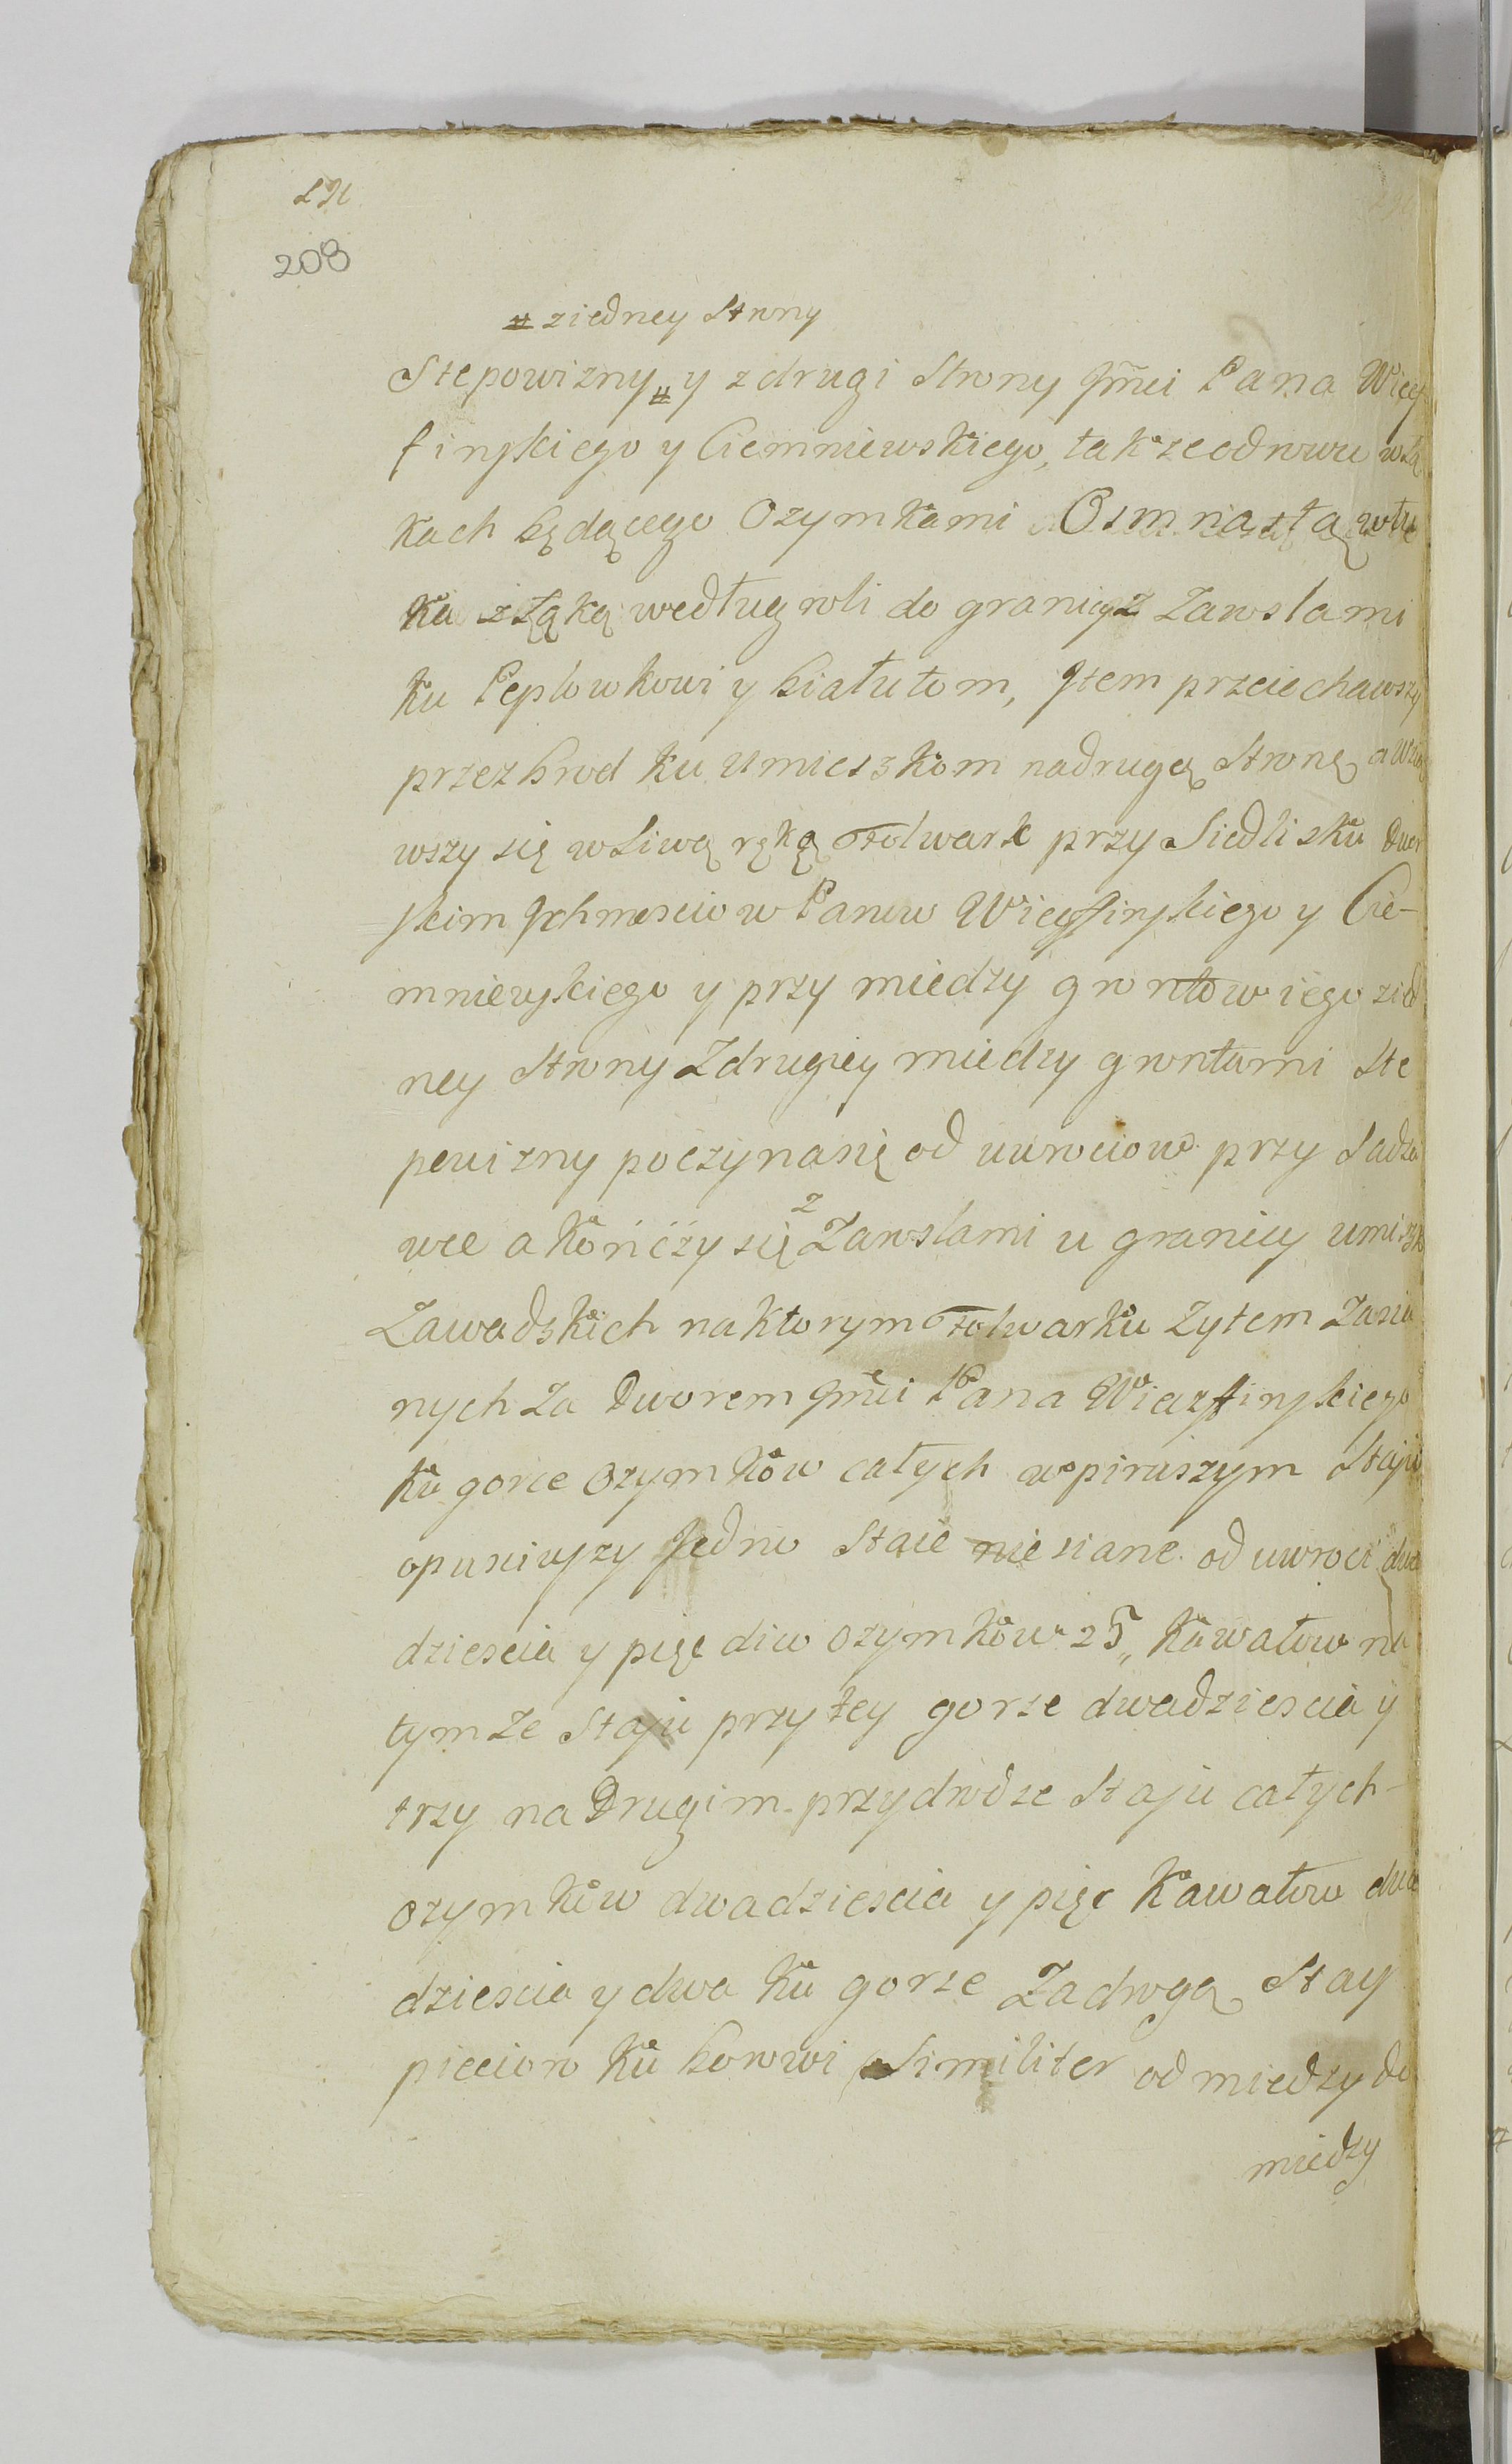 208
# ziedney Strony
Stepowizny # y z drugi Strony Jmci Pana Więs
sinskiego y Ciemniewskiego, takze od rowu w łą
kach będącego Ozymkami Osmnastą
ka z łąką według roli do granicz Zawslami
ku Peplowkowi y białutom, Jtem przeiechawszy
przez brod ku Umieszkom nadrugą Stronę a
wszy się w Liwą ręką Folwark przy Siedlisku Dwor
skim Jchmosciow Panow Więssinskiego y Cie-
mniewskiego y przy miedzy grontow iego zied
ney Strony Zdrugiey miedzy grontami Ste
powizny poczynasię od uwrociow przy Sadza
wce a kończy się z Zawslami u granicy umiszk
Zawadzkich naktorym Folwarku Zytem Zasia
nych Za Dworem Jmci Pana Wiezssinskiego
ku gorce Ozymków całych w pirwszym Staju
opusciwszy Jedno Staie niesiane od uwroci dwa
dziescia y pięc diw ozymków 25,, kawałow na
tymze Staju przy tey gorze dwadziescia y
trzy na Drugim przydrodze Staju całych
ozymków dwadziescia y pięc kawałow dwa
dziescia y dwa ku gorze Zadrogą Stay
pieciow ku borowi Similiter od miedzy do
miedzy